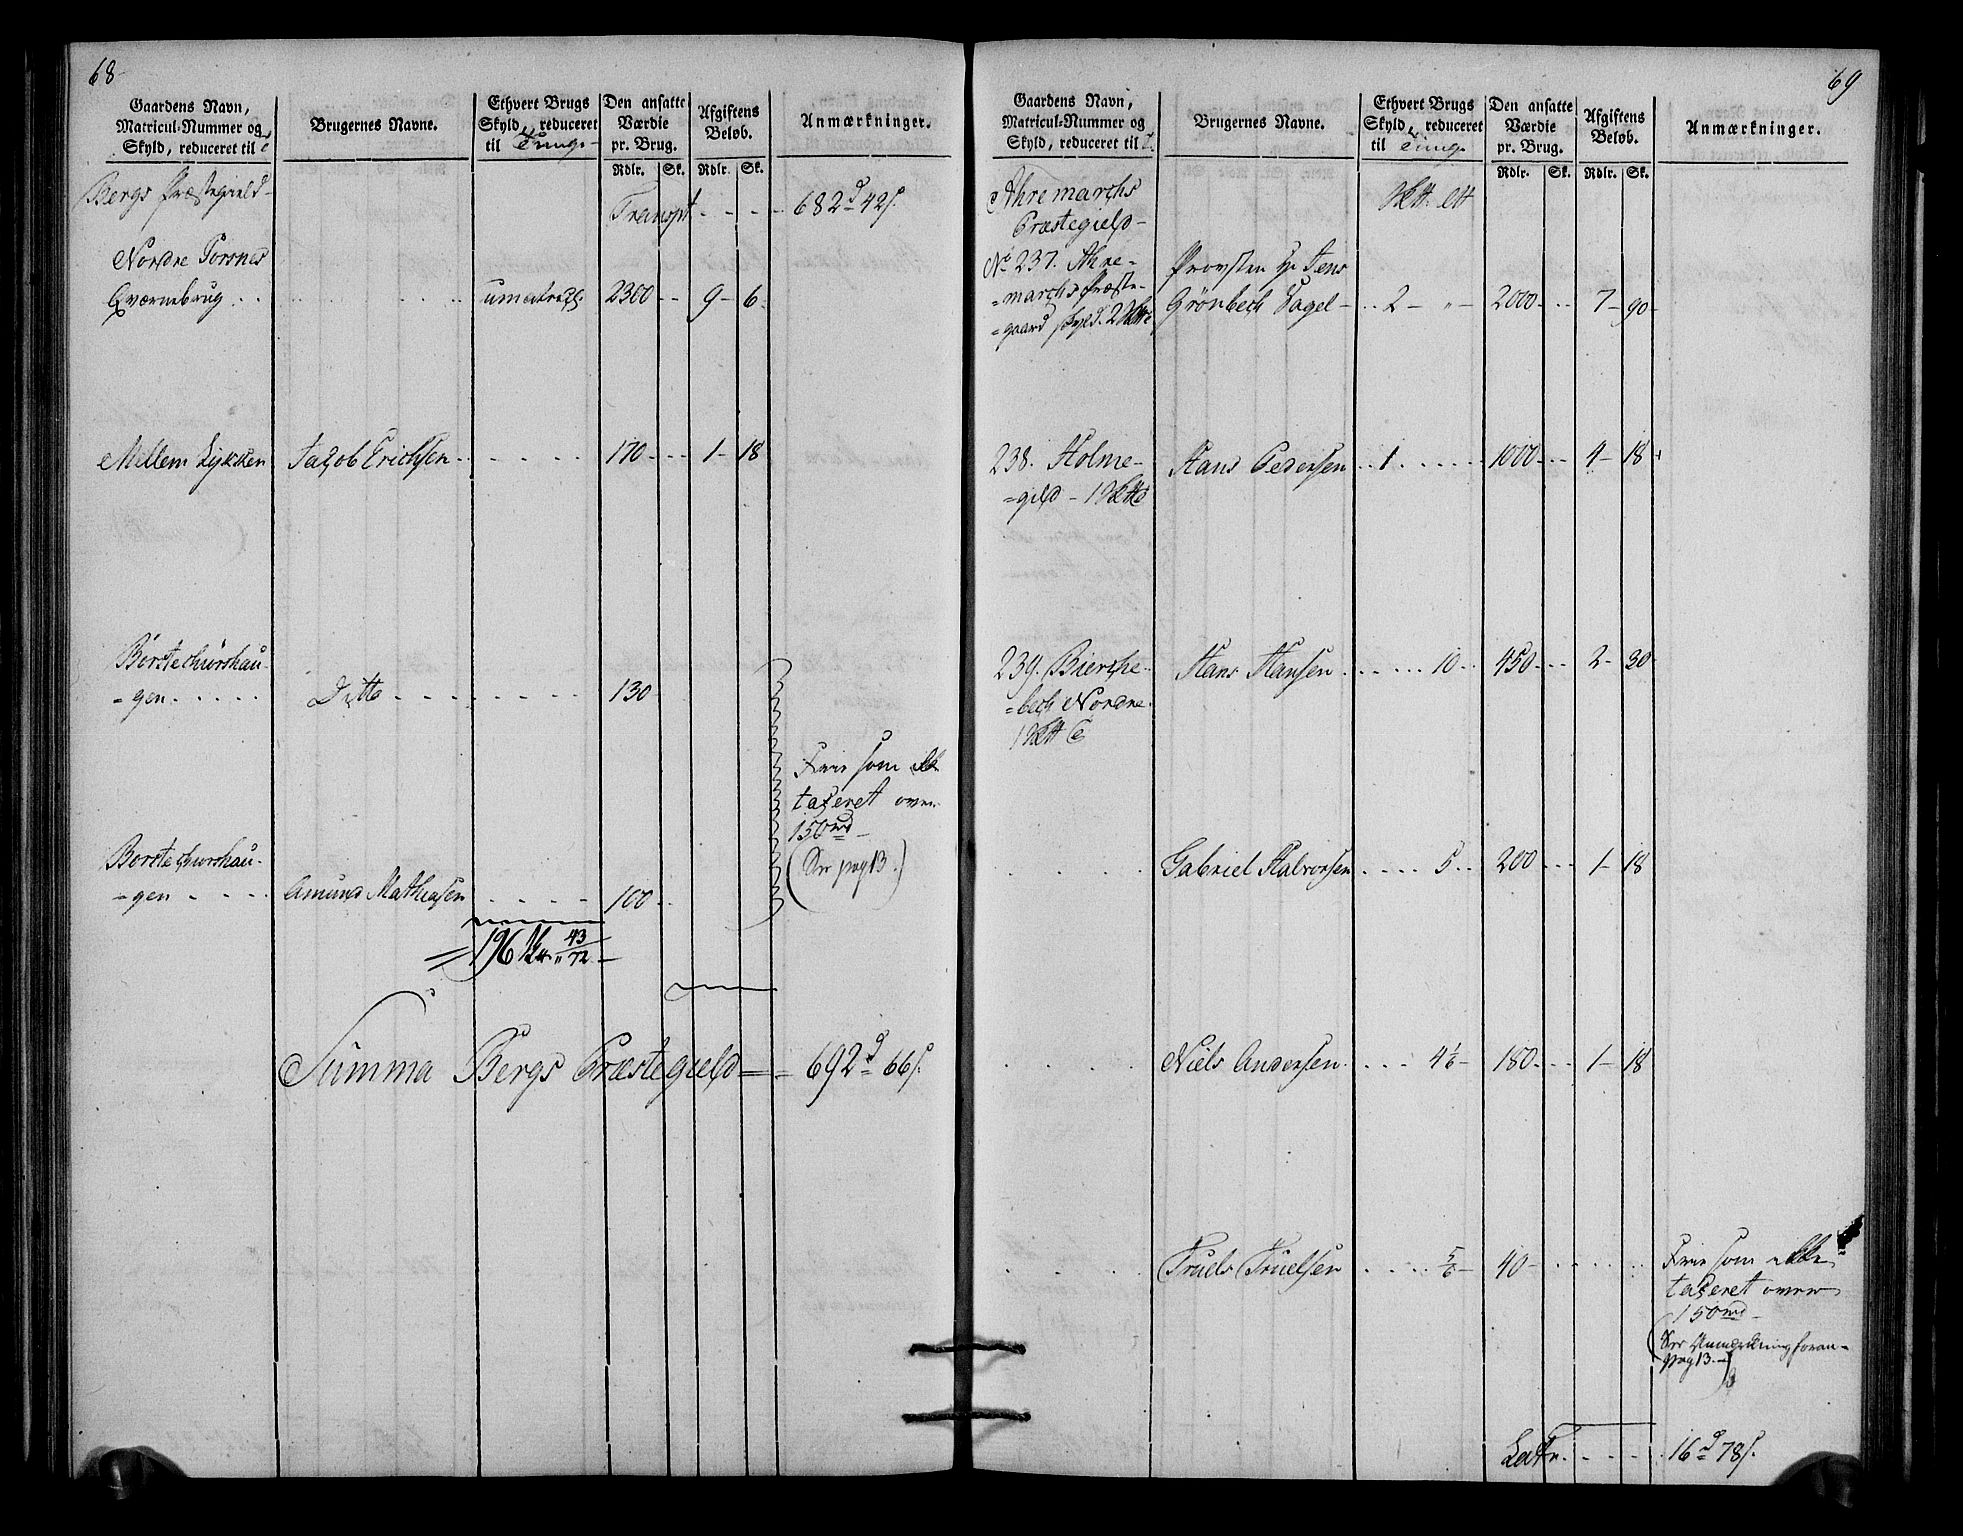 68
Gaardens Navn,
Matricul-Nummer og
Skyld, reduceret til
Brugernes Navne.
Ethvert Brugs
Skyld, reduceret
til Tunge
Den ansatte
Værdie
pr. Brug.
Afgiftens
Beløb.
Anmærkninger.
Rdlr. Sk. Rdlr. Sk.
Bergs Præstegield
Transpt 682 d 42 s.
Nordre Torsnes
Qværnebrug 2300 9 6
Mellem Lykken Jacob Erichsen 170 1 18
Børstechiørshau-
-gen Ditto 130
Frie som ikke
taxeret over
150 rd
(See pag 13.)
Børstechiørshau-
-gen Amund Mathiasen 100
196 43/72
Summa Bergs Præstegield 692 d 66 s.
69
Gaardens Navn,
Matricul-Nummer og
Skyld, reduceret til
Brugernes Navne.
Ethvert Brugs
Skyld, reduceret
til Tunge
Den ansatte
Værdie
pr. Brug.
Afgiftens
Beløb.
Anmærkninger.
Rdlr. Sk. Rdlr. Sk.
Ahremarchs
Præstegield
No 237. Ahre-
-marchs Præste-
-gaard skyld. 2
Provsten Hr Jens
Grönbech Vogel 2 " 2000 7 90
238. Holme-
-gild 1
Hans Pedersen 1 1000 4 18
239. Bierche-
-bech Nordre
1
Hans Hansen 10 450 2 30
Gabriel Halvorsen 5 200 1 18
Niels Andersen 4 1/6 180 1 18
Truels Truelsen 5/6 40
Frie som ikke
taxeret over
150 rd
(See Anmerkning foran
pag 13.)
Latr. 16 d 78 s.